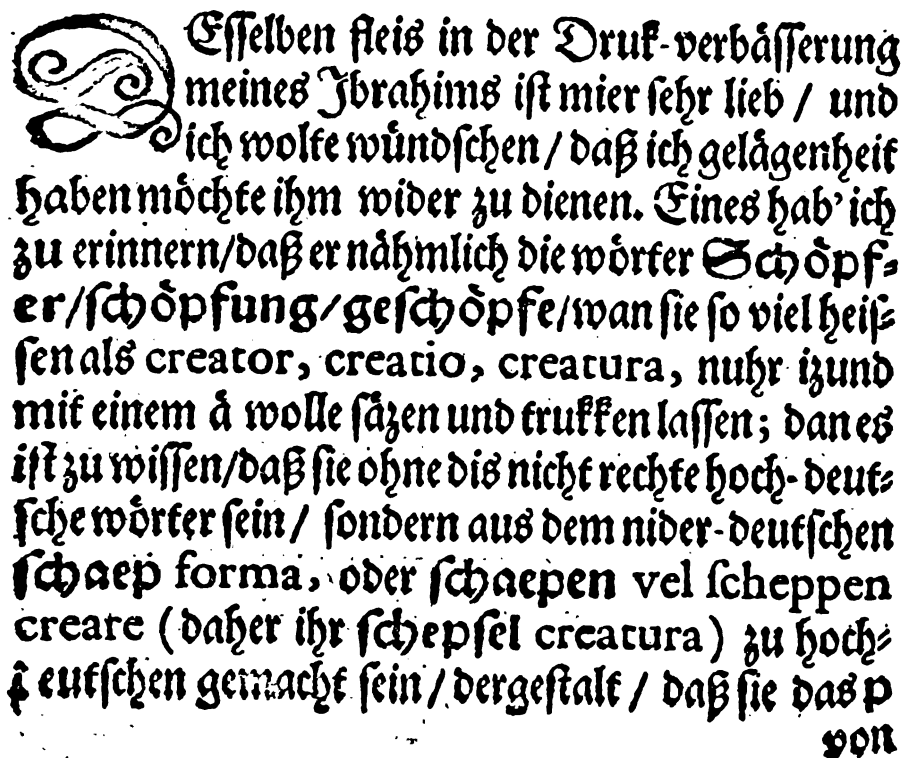 DEſſelben fleis in der Druk-verbåſſerung
meines Jbrahims iſt mier ſehr lieb / und
ich wolte wündſchen / daß ich gelågenheit
haben möchte ihm wider zu dienen. Eines hab' ich
zu erinnern/daß er nåhmlich die wörter Schöpf⸗
er/ſchöpfung/geſchöpfe/wan ſie ſo viel heiſ⸗
ſen als creator, creatio, creatura, nuhr izund
mit einem å wolle ſåzen und trukken laſſen; dan es
iſt zu wiſſen/daß ſie ohne dis nicht rechte hoch-deut⸗
ſche wörter ſein / ſondern aus dem nider-deutſchen
ſchaep forma, oder ſchaepen vel ſcheppen
create (daher ihr ſchepſel creatura) zu hoch⸗
deutſchen gemacht ſein / dergeſtalt / daß ſie das p
von